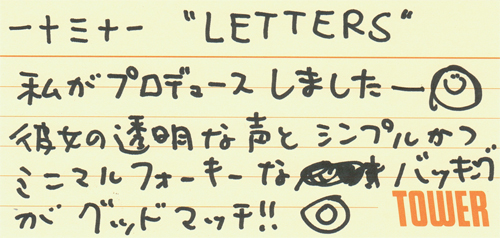 一十三十一 "LETTERS"
私がプロデュースしましたー
彼女の透明な声とシンプルかつ
ミニマルフォーキーなバッキング
がグッドマッチ!!
TOWER